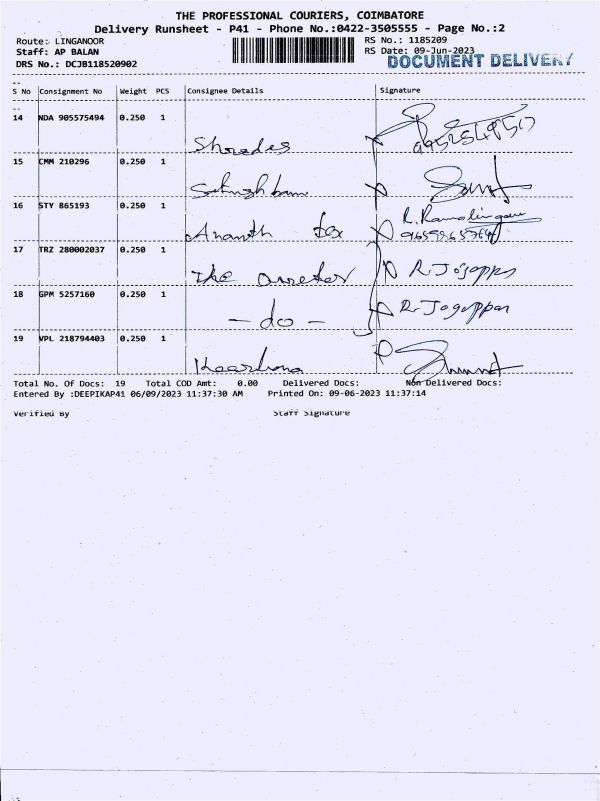 THE PROFESSIONAL COURIERS, COIMBATORE
Delivery Runsheet - P41 - Phone No.:0422-3505555 - Page No.:2
Route: LINGANOOR
RS No.: 1185209
Staff: AP BALAN
RS Date: 09-Jun-2023
DRS No.: DCJB118520902
DOCUMENT DELIVERY
S No Consignment No Weight PCS Consignee Details Signature
14 NDA 905575494 0.250 1
15 CMM 210296 0.250 1
16 STY 865193 0.250 1 R. Ramalingam
Ananth tex
17 TRZ 280002037 0.250 1
The Director R. Jogappan
18 GPM 5257160 0.250 1
- do - R. Jogappan
19 VPL 218794403 0.250 1
Total No. Of Docs: 19 Total COD Amt: 0.00 Delivered Docs: Non Delivered Docs:
Entered By :DEEPIKAP41 06/09/2023 11:37:30 AM Printed On: 09-06-2023 11:37:14
Verified By Staff Signature